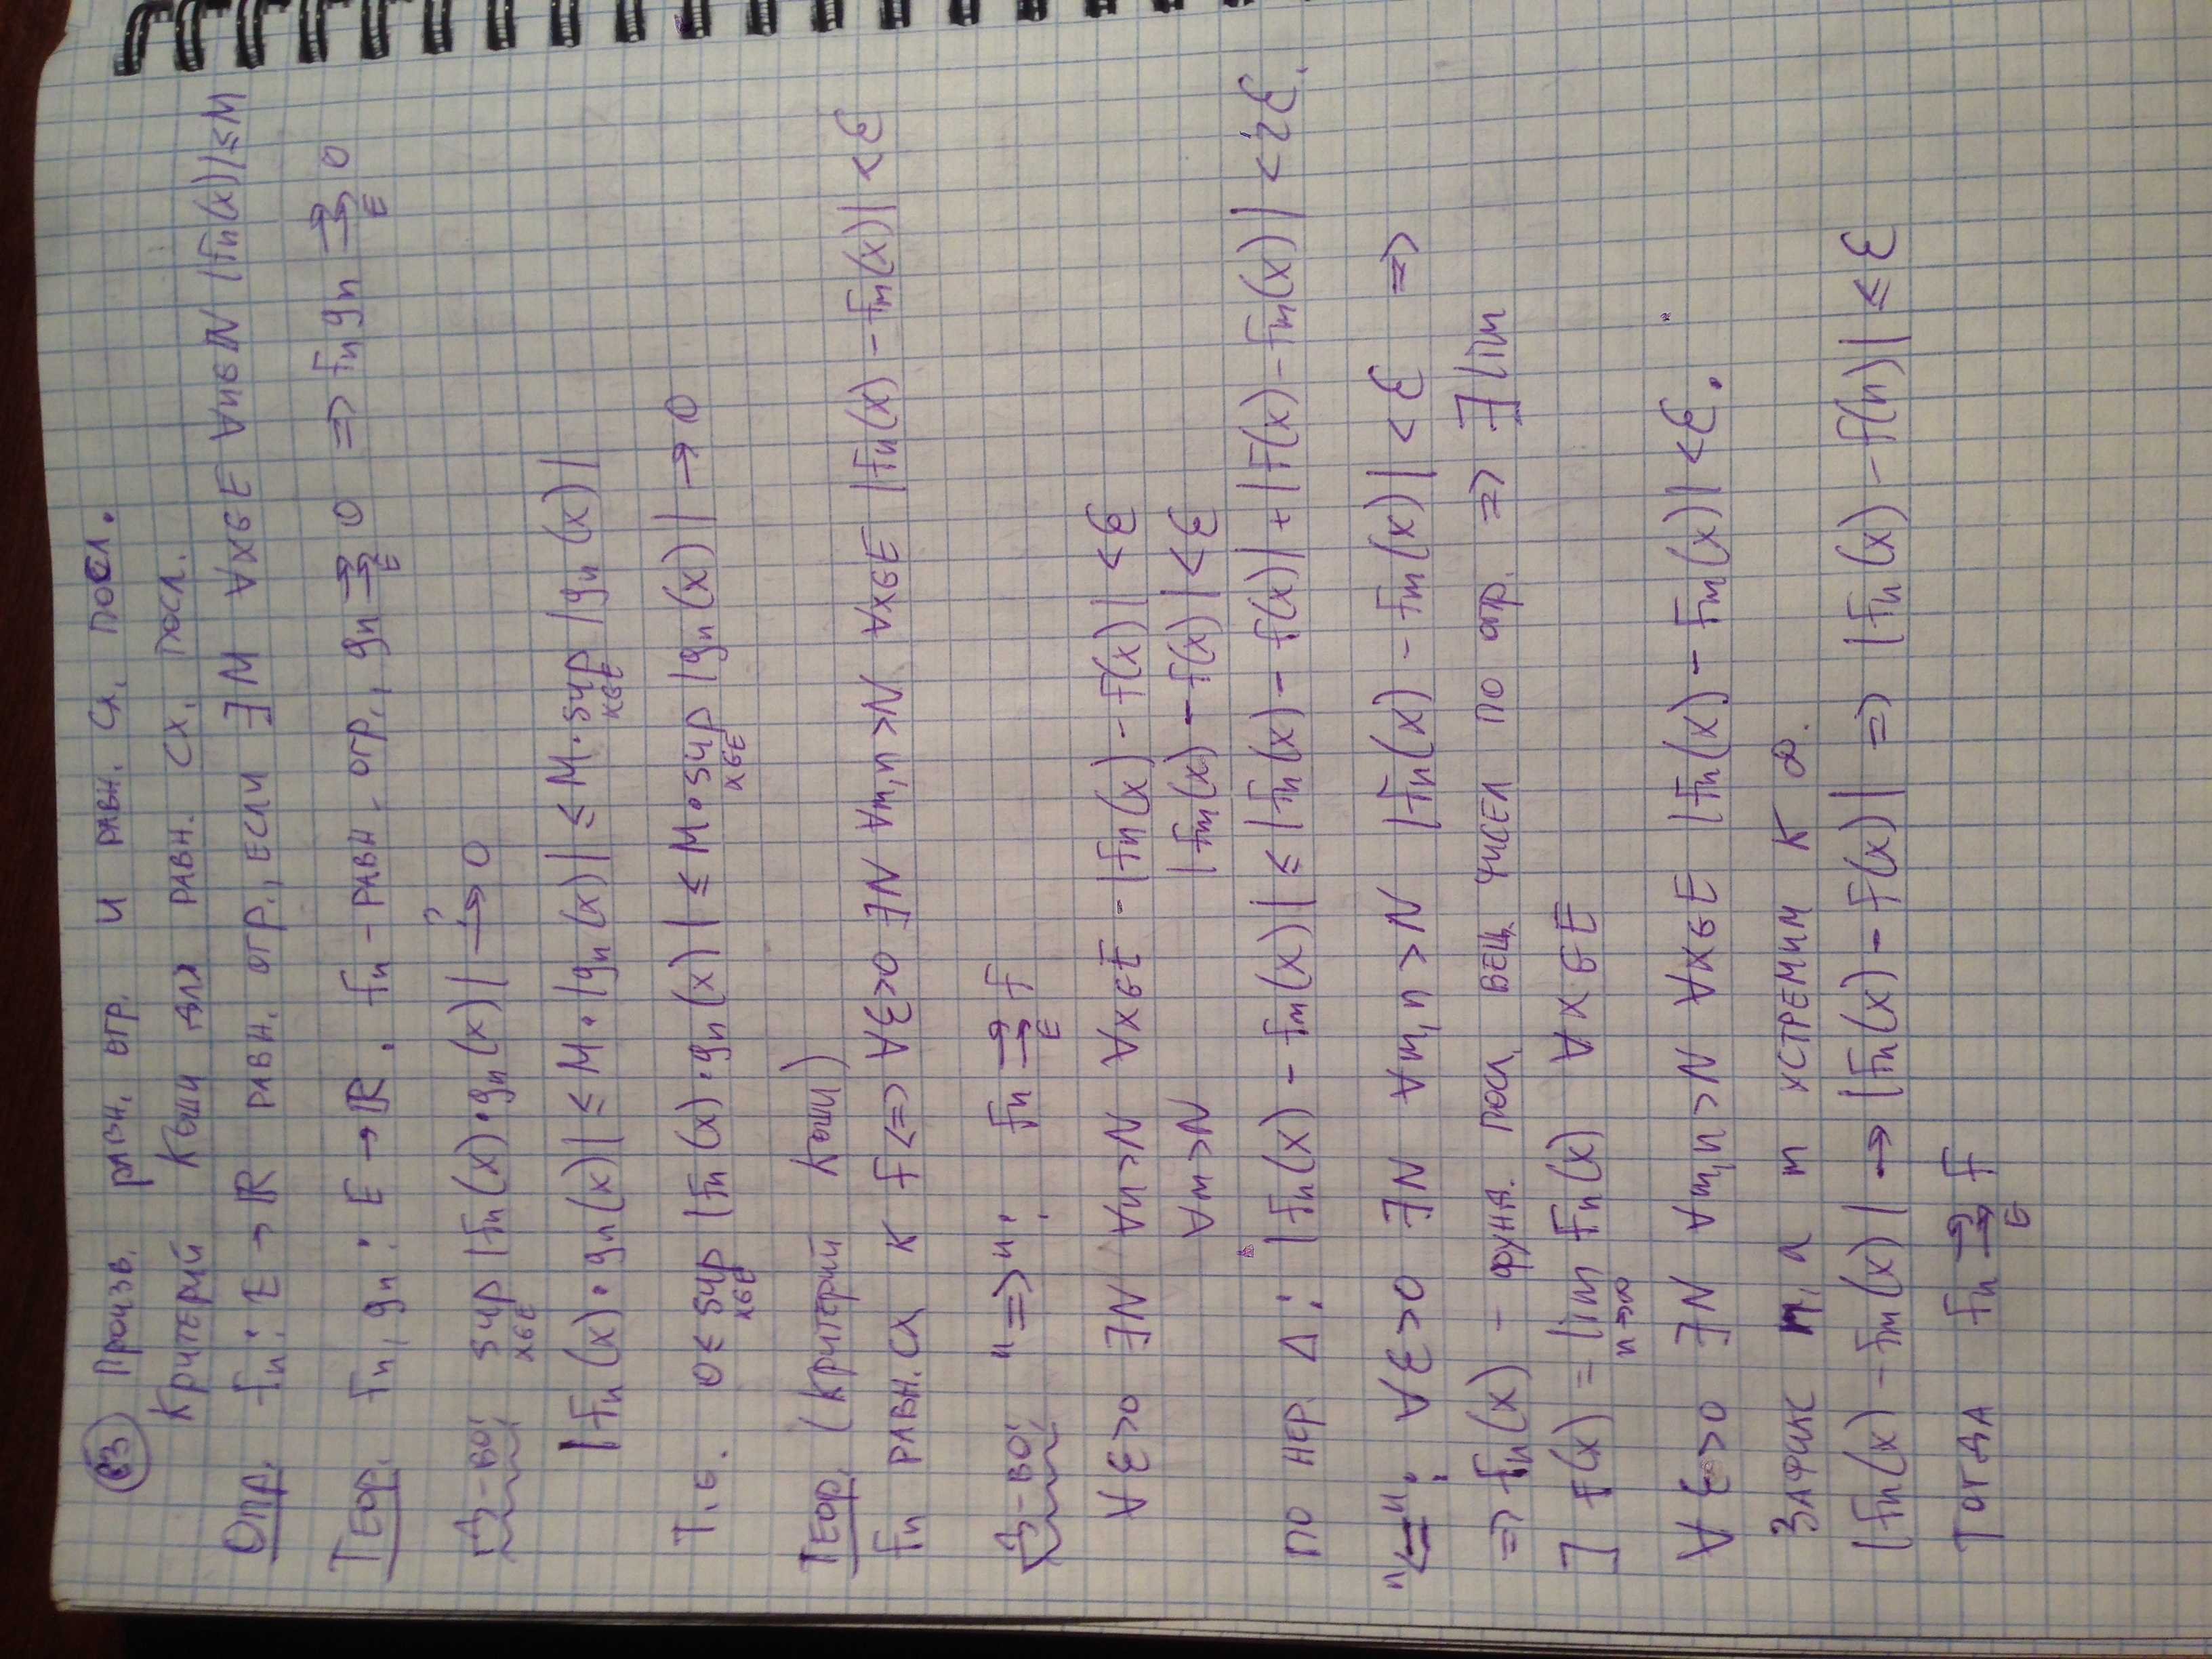 63 Произв. равн. огр. и равн. сх. посл.
Критерий Коши для равн. сх. посл.
Опр. fn: E → ℝ равн. огр., если ∃M ∀x∈E ∀n∈ℕ |fn(x)| ≤ M
Теор. fn, gn: E → ℝ. fn – равн. огр., gn ⇉ 0 ⇒ fn gn ⇉ 0
E E
Д-во: sup |fn(x)·gn(x)| →? 0
x∈E
|fn(x)·gn(x)| ≤ M·|gn(x)| ≤ M·sup |gn(x)|
x∈E
Т.е. 0 ≤ sup |fn(x)·gn(x)| ≤ M·sup |gn(x)| → 0
x∈E x∈E
Теор. (Критерий Коши)
fn равн. сх к f <=> ∀ε>0 ∃N ∀m,n>N ∀x∈E |fn(x) – fm(x)| < ε
Д-во: "=>": fn ⇉ f
E
∀ε>0 ∃N ∀n>N ∀x∈E - |fn(x) – f(x)| < ε
∀m>N |fm(x) – f(x)| < ε
по нер. Δ: |fn(x) – fm(x)| ≤ |fn(x) – f(x)| + |f(x) – fm(x)| < 2ε.
"<=": ∀ε>0 ∃N ∀m,n>N |fn(x) – fm(x)| < ε =>
=> fn(x) – фунд. посл. вещ. чисел по опр. => ∃ lim
] f(x) = lim fn(x) ∀x∈E
n→∞
∀ε>0 ∃N ∀m,n>N ∀x∈E |fn(x) – fm(x)| < ε.
Зафикс n, а m устремим к ∞.
|fn(x) – fm(x)| → |fn(x) – f(x)| => |fn(x) – f(n)| ≤ ε
Тогда fn ⇉ f
E